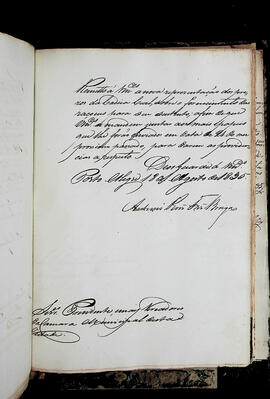 Remetto á Vm.ces a nova representação dos pre-
zos da Cadeia Civil, sobre o fornecimento das
racoens para seu sustento, afim de que
Vm.ces mandem juntar aos mais papeis
que lhe forão enviados em data de 21 de
proximo passado, para darem as providen-
cias a respeito.
Deos Guarde a Vm.ces
Porto Alegre 18 de Agosto de 1835
Antonio Roiz Fes Braga
Snrs. Presidente, e mais Vereadores
da Camara Municipal desta
Cidade